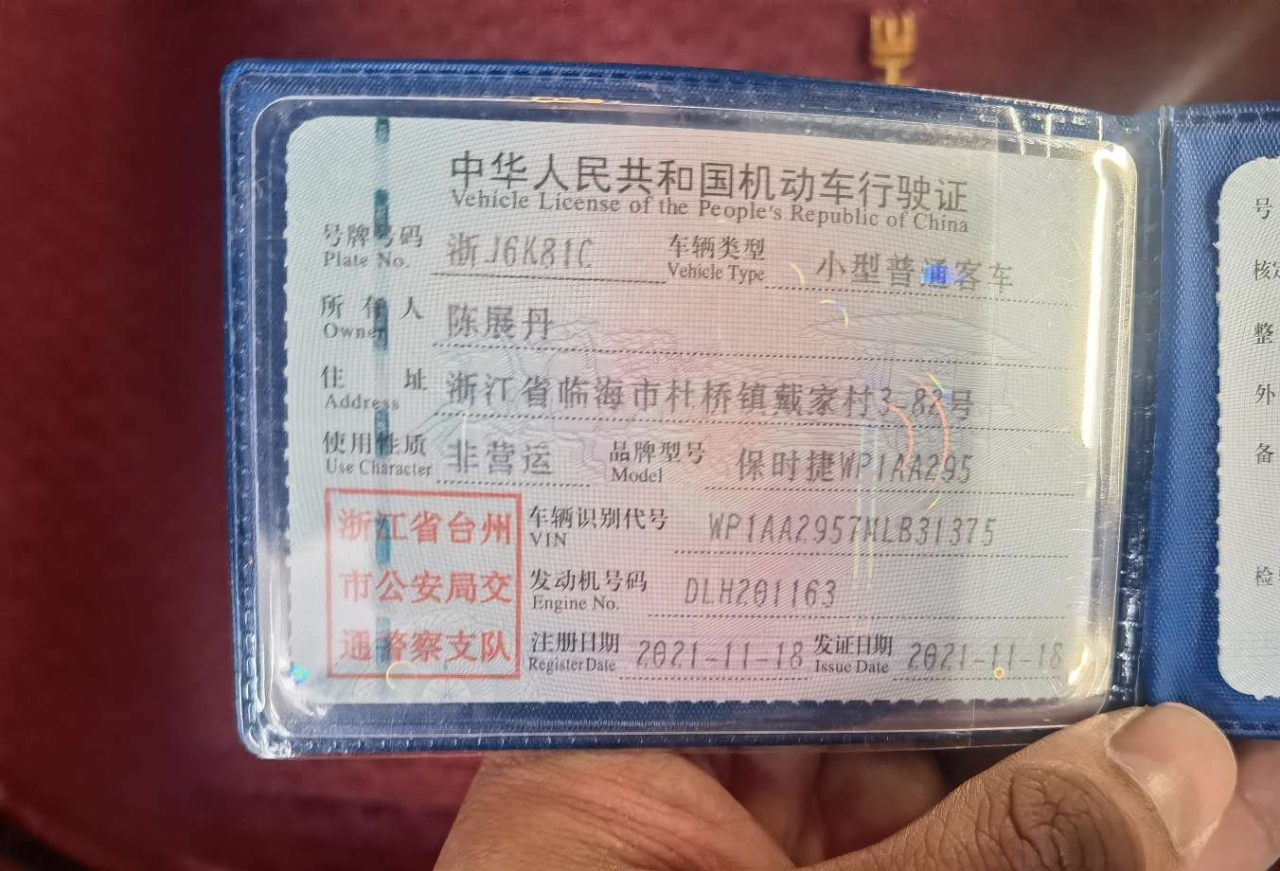 中华人民共和国机动车行驶证
Vehicle License of the People's Republic of China
号牌号码 浙J6K81C 车辆类型 小型普通客车
Plate No. Vehicle Type
所有人 陈展丹
Owner
住址 浙江省临海市杜桥镇戴家村3-82号
Address
使用性质 非营运 品牌型号 保时捷WP1AA295
Use Character Model
浙江省台州
市公安局交
通警察支队
车辆识别代号 WP1AA2957MLB31375
VIN
发动机号码 DLH201163
Engine No.
注册日期 2021-11-18 发证日期 2021-11-18
Register Date Issue Date
号
核定
整
外
备
检